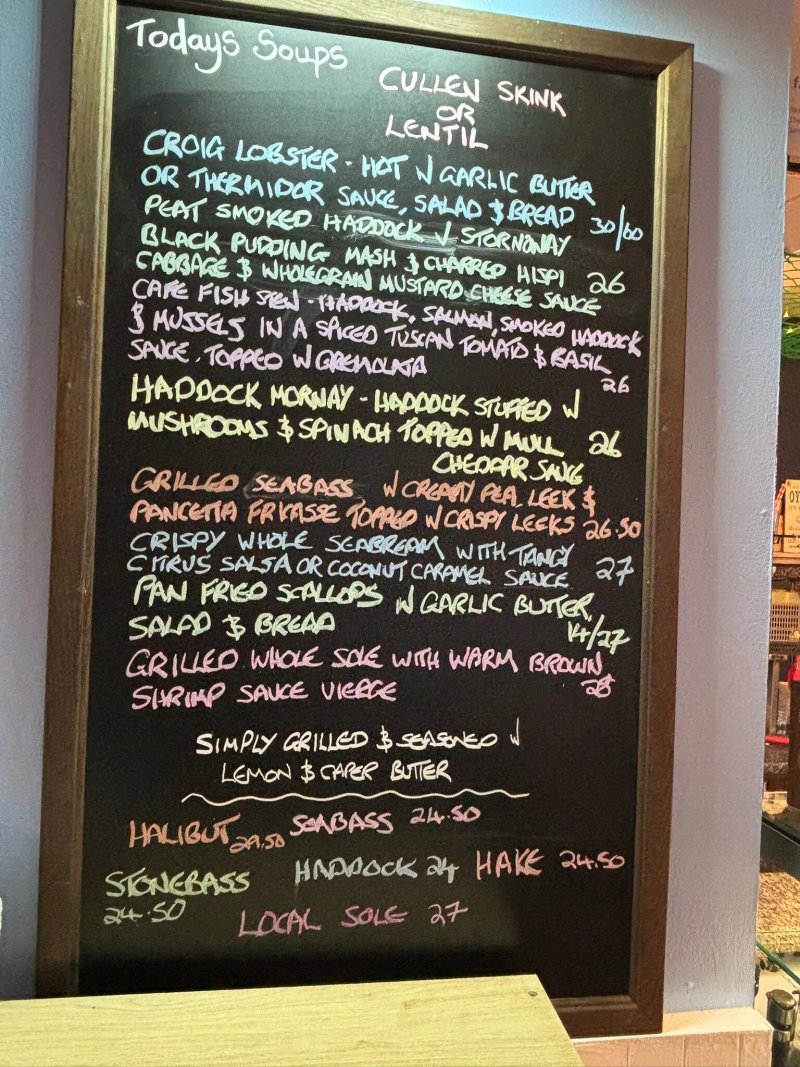 Todays Soups
CULLEN SKINK
OR
LENTIL
CROIG LOBSTER - HOT W GARLIC BUTTER
OR THERMIDOR SAUCE, SALAD & BREAD 30/60
PEAT SMOKED HADDOCK W STORNOWAY
BLACK PUDDING MASH & CHARRED HISPI 26
CABBAGE & WHOLEGRAIN MUSTARD CHEESE SAUCE
CAFE FISH STEW - HADDOCK, SALMON, SMOKED HADDOCK
& MUSSELS IN A SPICED TUSCAN TOMATO & BASIL
SAUCE. TOPPED W GREMOLATA 26
HADDOCK MORNAY - HADDOCK STUFFED W
MUSHROOMS & SPINACH TOPPED W MULL 26
CHEDDAR SAUCE
GRILLED SEABASS W CREAMY PEA, LEEK &
PANCETTA FRIKASSE TOPPED W CRISPY LEEKS 26.50
CRISPY WHOLE SEABREAM WITH TANGY
CITRUS SALSA OR COCONUT CARAMEL SAUCE 27
PAN FRIED SCALLOPS W GARLIC BUTTER,
SALAD & BREAD 14/27
GRILLED WHOLE SOLE WITH WARM BROWN
SHRIMP SAUCE VIERGE 28
SIMPLY GRILLED & SEASONED W
LEMON & CAPER BUTTER
HALIBUT 29.50 SEABASS 24.50
STONEBASS HADDOCK 24 HAKE 24.50
24.50
LOCAL SOLE 27